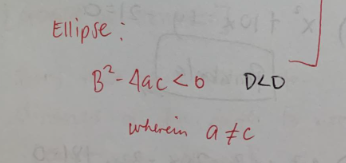 Ellipse:
B²-4ac<0 D<0
wherein a≠c